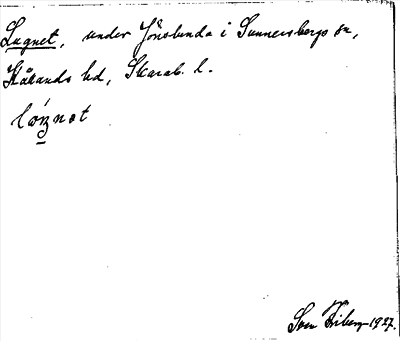 Lugnet, under Jönslunda i Sunnersbergs sn,
Kålands hd, Skarab. l.
Sven Friberg 1927.